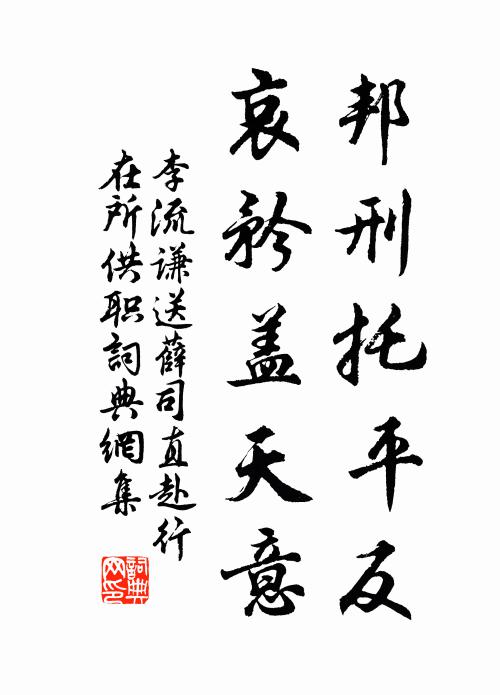 邦刑托平反
哀矜盖天意
李流谦送薛司直赴行
在所供职词典網集
詞典
网印